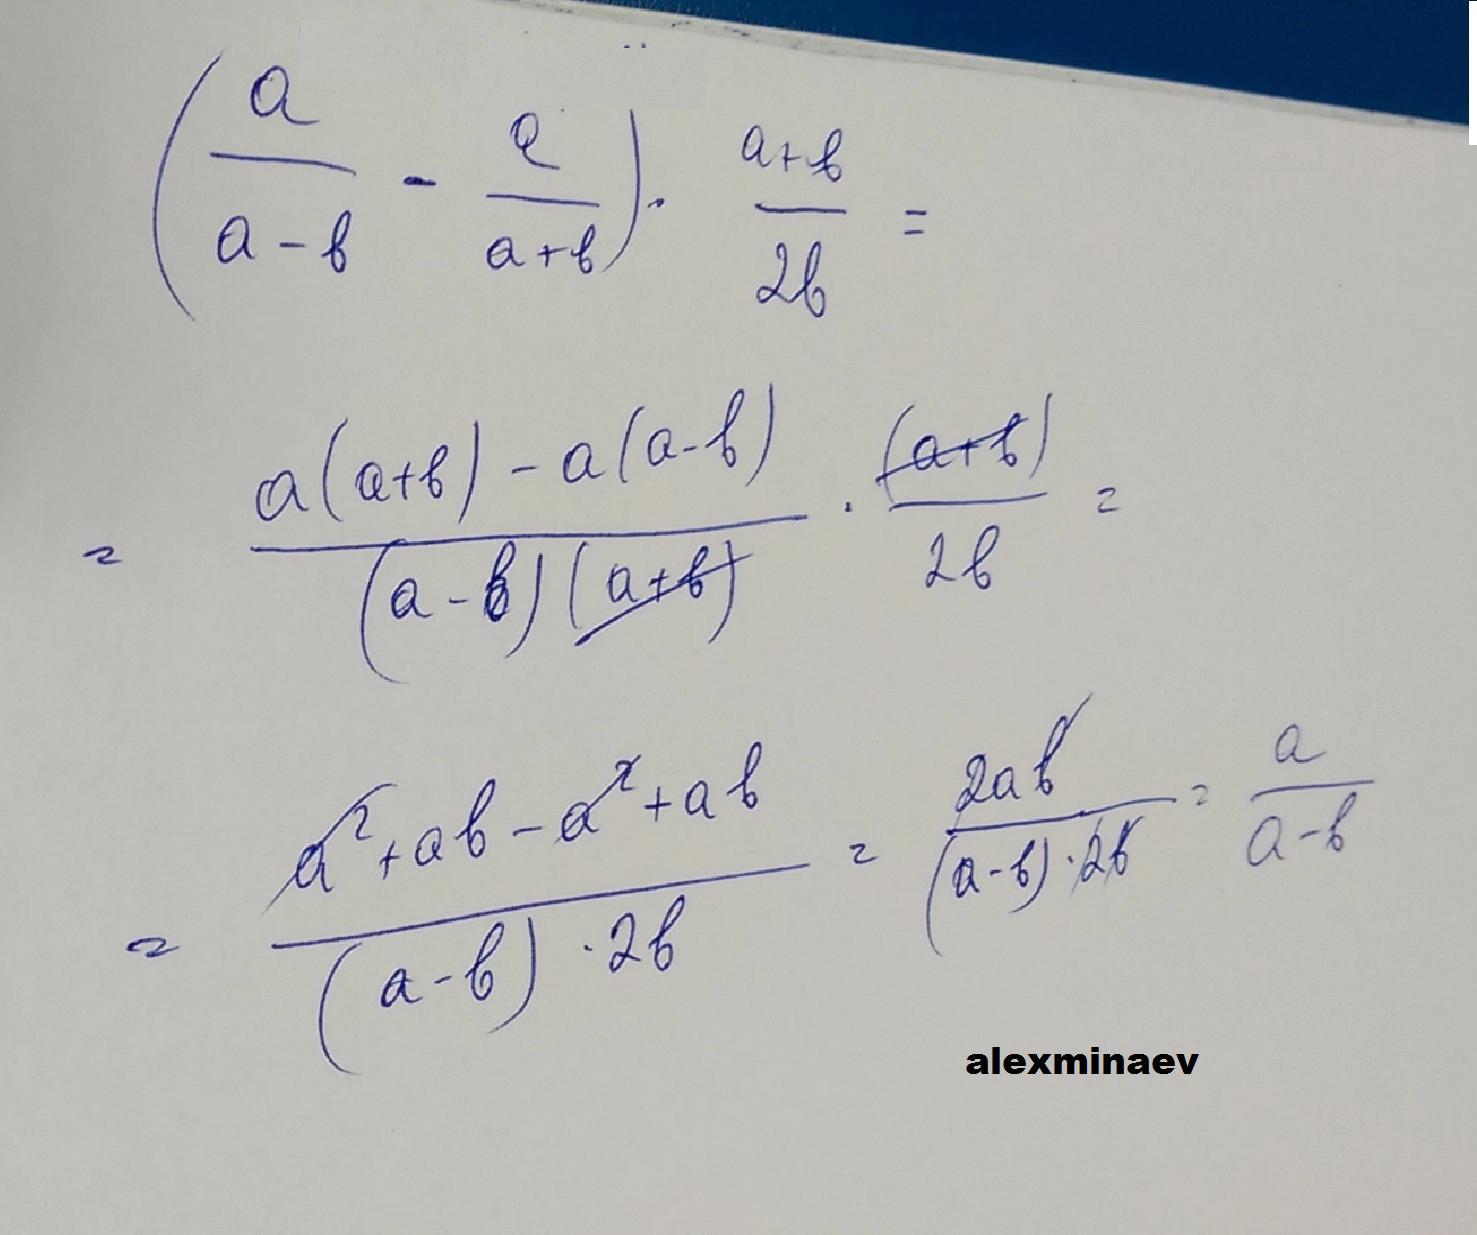 (a/(a-b) - a/(a+b)) · (a+b)/(2b) =
= (a(a+b) - a(a-b))/((a-b)(a+b)) · (a+b)/(2b) =
= (a²+ab-a²+ab)/((a-b)·2b) = (2ab)/((a-b)·2b) = a/(a-b)
alexminaev